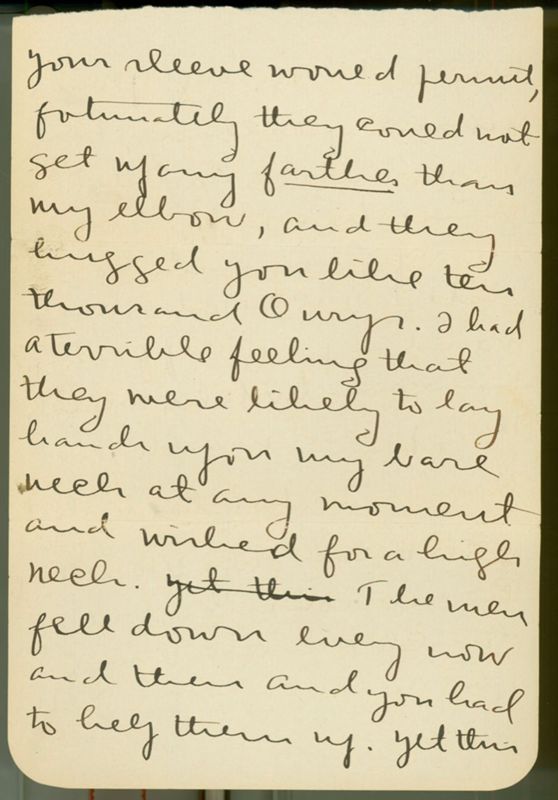 your sleeve would permit,
fotunately they could not
get up any farther than
my elbow, and they
hugged you like ten
thousand Ourys. I had
a terrible feeling that
they were likely to lay
hands upon my bare
neck at any moment
and wished for a high
neck. yet this The men
fell down every now
and then and you had
to help them up. yet this